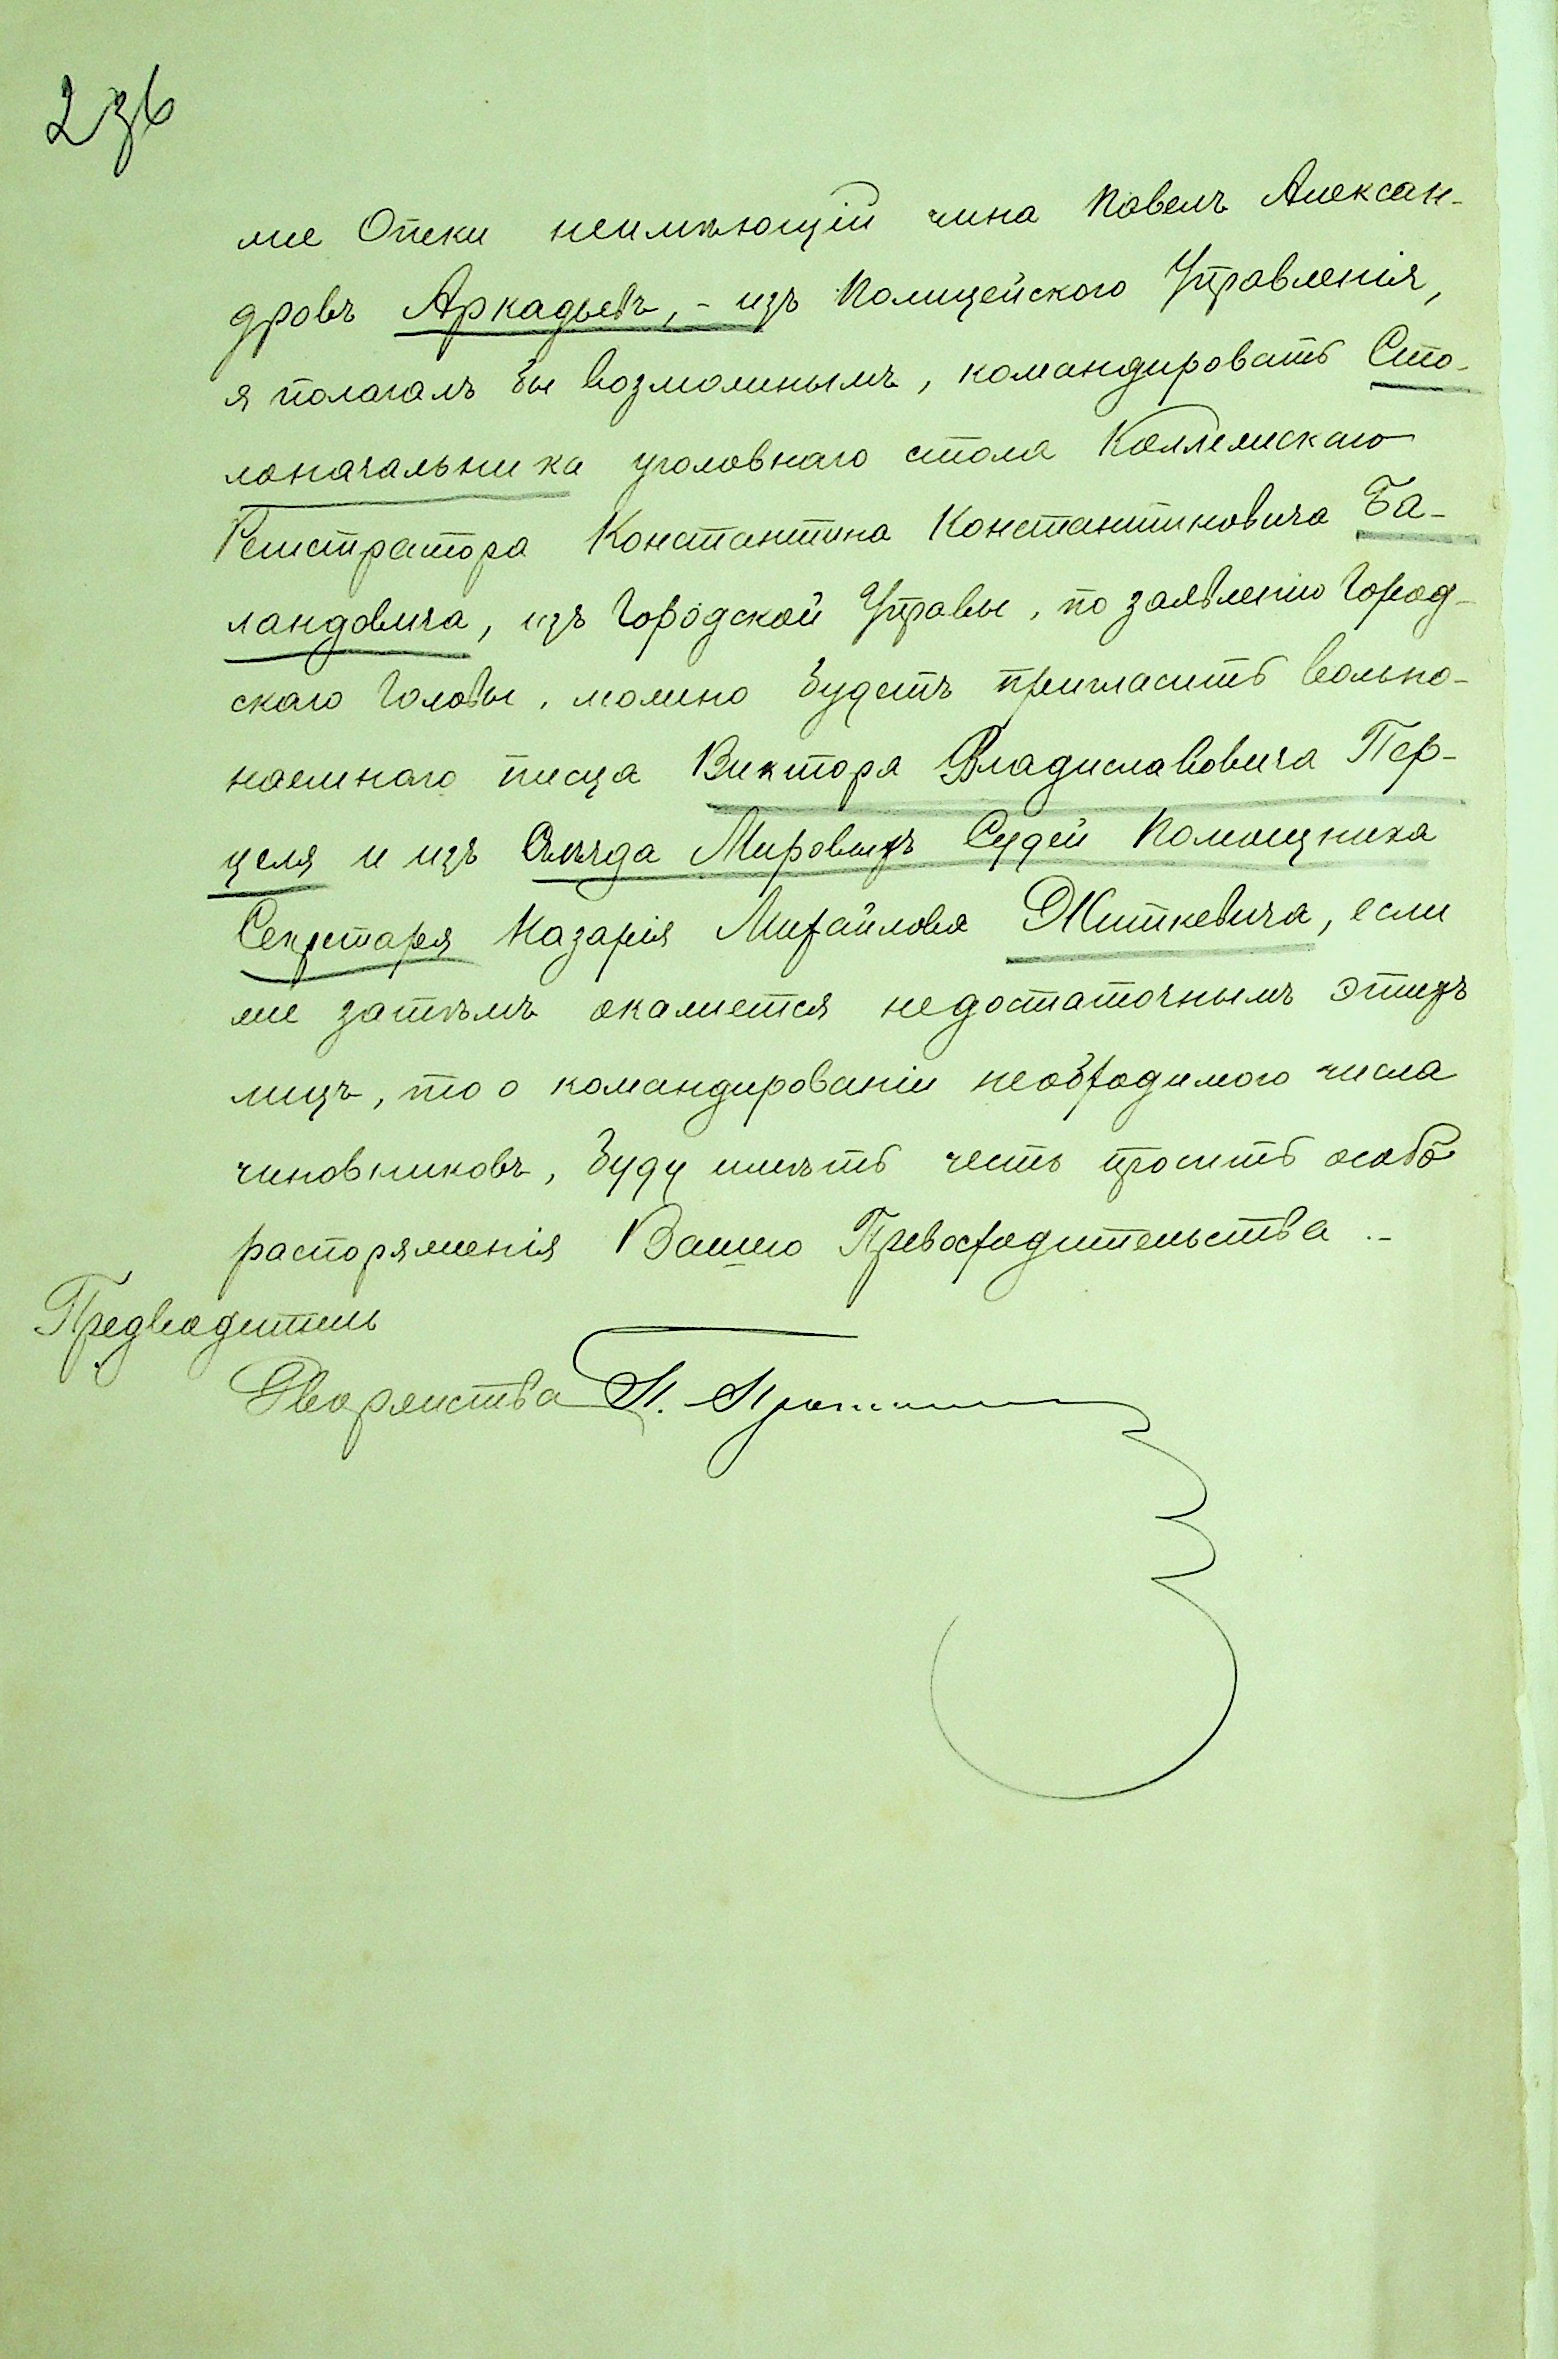 236
же Опеки неимѣющій чина Павелъ Алексан-
дровъ Аркадьевъ, - изъ Полицейского Управленія,
я полагалъ бы возможнымъ, командировать Сто-
лоначальника уголовнаго стола Коллежскаго
Регистратора Константина Константиновича Ба-
ландовича, изъ Городской Управы, по заявленію Город-
скаго Головы, можно будетъ пригласить вольно-
наемнаго писца Виктора Владиславовича Пер-
целя и изъ Съѣзда Мировыхъ Судей Помощника
Секретаря Назарія Михайлова Житкевича, если
же затѣмъ окажется недостаточнымъ этихъ
лицъ, то о командированіи необходимого числа
чиновниковъ, буду имѣть честь просить особо
распоряженія Вашего Превосходительства.-
Предводитель
Дворянства П.